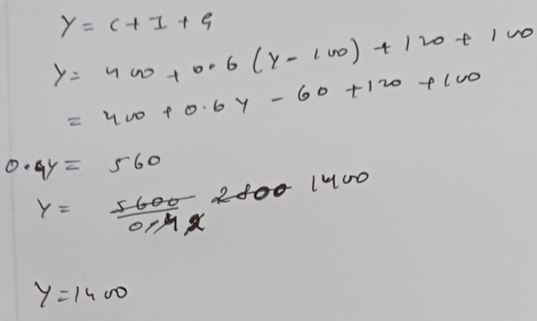 Y = C + I + G
Y = 400 + 0.6 (Y - 100) + 120 + 100
= 400 + 0.6Y - 60 + 120 + 100
0.4Y = 560
Y = 5600 2800 1400
0.4 2
Y = 1400